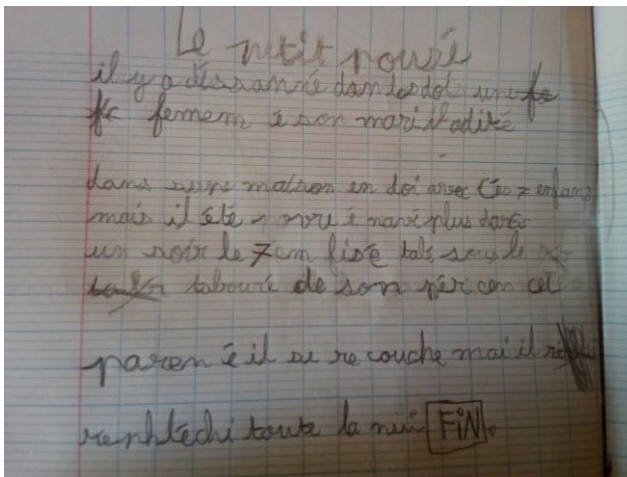 Le petit pousé
il y a dissanné dans les doi une
femem é son mari
dans une maison en doi avec Ces 7 enfans
mais il été povre é navé plus darg
un soir le 7 em fise sous le
tabouré de son pér can cet
paren é il se re couche mai il
rephléchi toute la nui FiN.